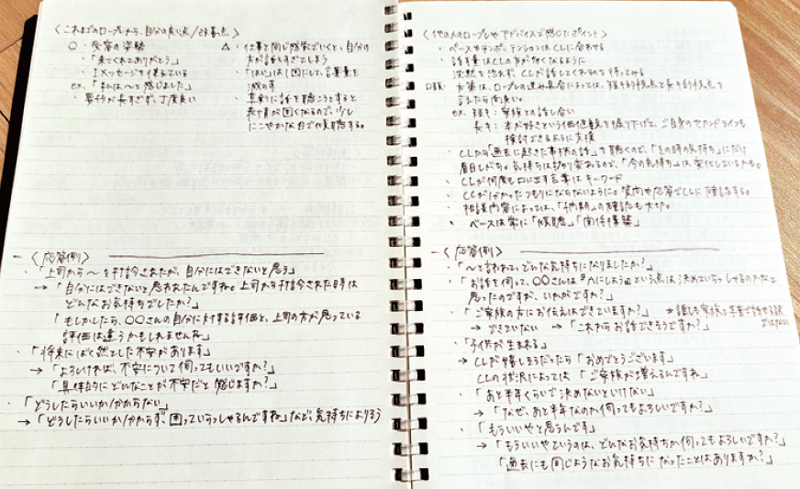 〈これまでのロープレから、自分の良い点/改善点〉
○・受容の姿勢
・「来てくれてありがとう」
・Iメッセージを伝えている
ex.「私は〜と感じました」
・要約が長すぎず、丁度良い
△・仕事と同じ感覚でいくと、自分の
方が話しすぎてしまう
・「はい」は1回にして、言葉量を
減らす
・真剣に話を聴こうとすると
表情が固くなるので、少し
にこやかな目で傾聴する。
〈応答例〉
・「上司から〜を打診されたが、自分にはできないと思う」
→「自分にはできないと思われたんですね。上司から打診された時は
どんなお気持ちでしたか?」
「もしかしたら、〇〇さんの自分に対する評価と、上司の方が思っている
評価は違うかもしれませんね」
・「将来にばく然とした不安があります」
→「よろしければ、不安について伺ってもいいですか?」
「具体的にどんなことが不安だと感じますか?」
・「どうしたらいいか分からない」
→「どうしたらいいか分からず、困っていらっしゃるんですね」など、気持ちによりそう
〈他の人のロープレやアドバイスで感じたポイント〉
・ペースやテンポ、テンションはCLに合わせる
・話す量はCLの方が多くなるように
沈黙を恐れず、CLが話してくれるのを待ってみる
口頭
方策は、ロープレの進み具合によっては、短キ的視点と長キ的視点を
言えたら尚良い。
ex. 短キ:家族との話し合い
長キ:本が好きという価値観を掘り下げて、ご自身のセカンドライフも
検討できるように支援
・CLからの「過去に起きた事柄の話」を聴くので、「その時の気持ち」にだけ
着目しがち。気持ちは移り変わるので、「今の気持ち」は変化しているかも。
・CLが何度も口に出す言葉はキーワード
・CLが分かったつもりにならないように。質問や応答でCLに確認する。
・相談内容によっては、「納期」の確認も大切。
・ベースは常に「傾聴」「関係構築」
〈応答例〉
・「〜と言われて、どんな気持ちになりましたか?」
・「お話を伺って、〇〇さんは『Aにしよう』という点は決めていらっしゃるのかなと
思ったのですが、いかがですか?」
・「ご家族の方にお伝えはできていますか?」→誰しも家族と本音で話せる訳
ではない
→できていない →「これからお話できそうですか?」
・「子供が生まれる」
→CLが嬉しそうだったら「おめでとうございます」
CLの状況によっては「ご家族が増えるんですね」
・「あと半年くらいで決めないといけない」
→「なぜ、あと半年なのか伺ってもよろしいですか?」
・「もういいやと思うんです」
→「もういいやというのは、どんなお気持ちか伺ってもよろしいですか?」
「過去にも同じようなお気持ちになったことはありますか?」